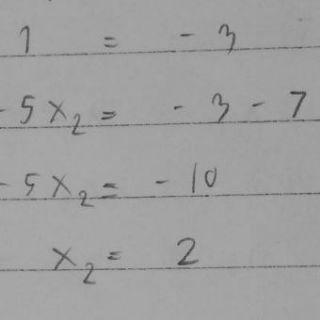 7 = - 3
- 5x₂ = - 3 - 7
- 5x₂ = - 10
x₂ = 2